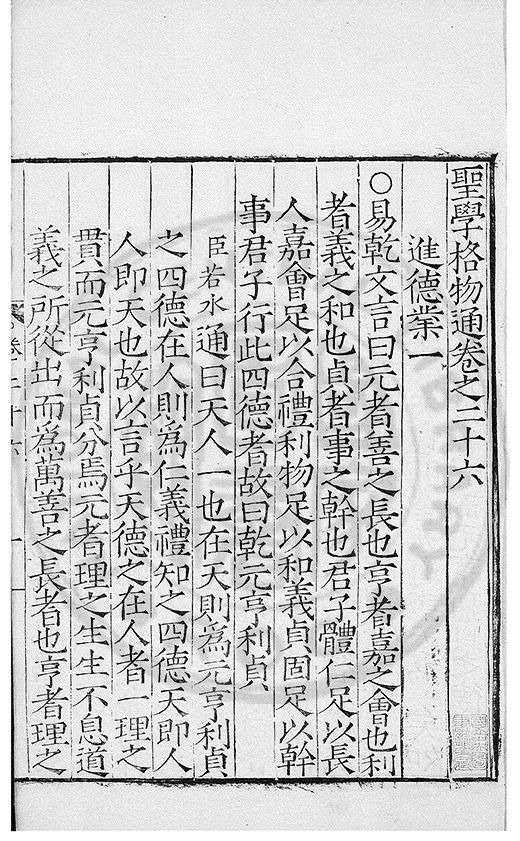 聖學格物通卷之二十六
進德業一
○易乾文言曰元者善之長也亨者嘉之會也利
者義之和也貞者事之幹也君子體仁足以長
人嘉會足以合禮利物足以和義貞固足以幹
事君子行此四德者故曰乾元亨利貞
臣若水通曰天人一也在天則為元亨利貞
之四德在人則為仁義禮知之四德天即人
人即天也故以言乎天德之在人者一理之
貫而元亨利貞分焉元者理之生生不息道
義之所從出而為萬善之長者也亨者理之
卷二十六
一